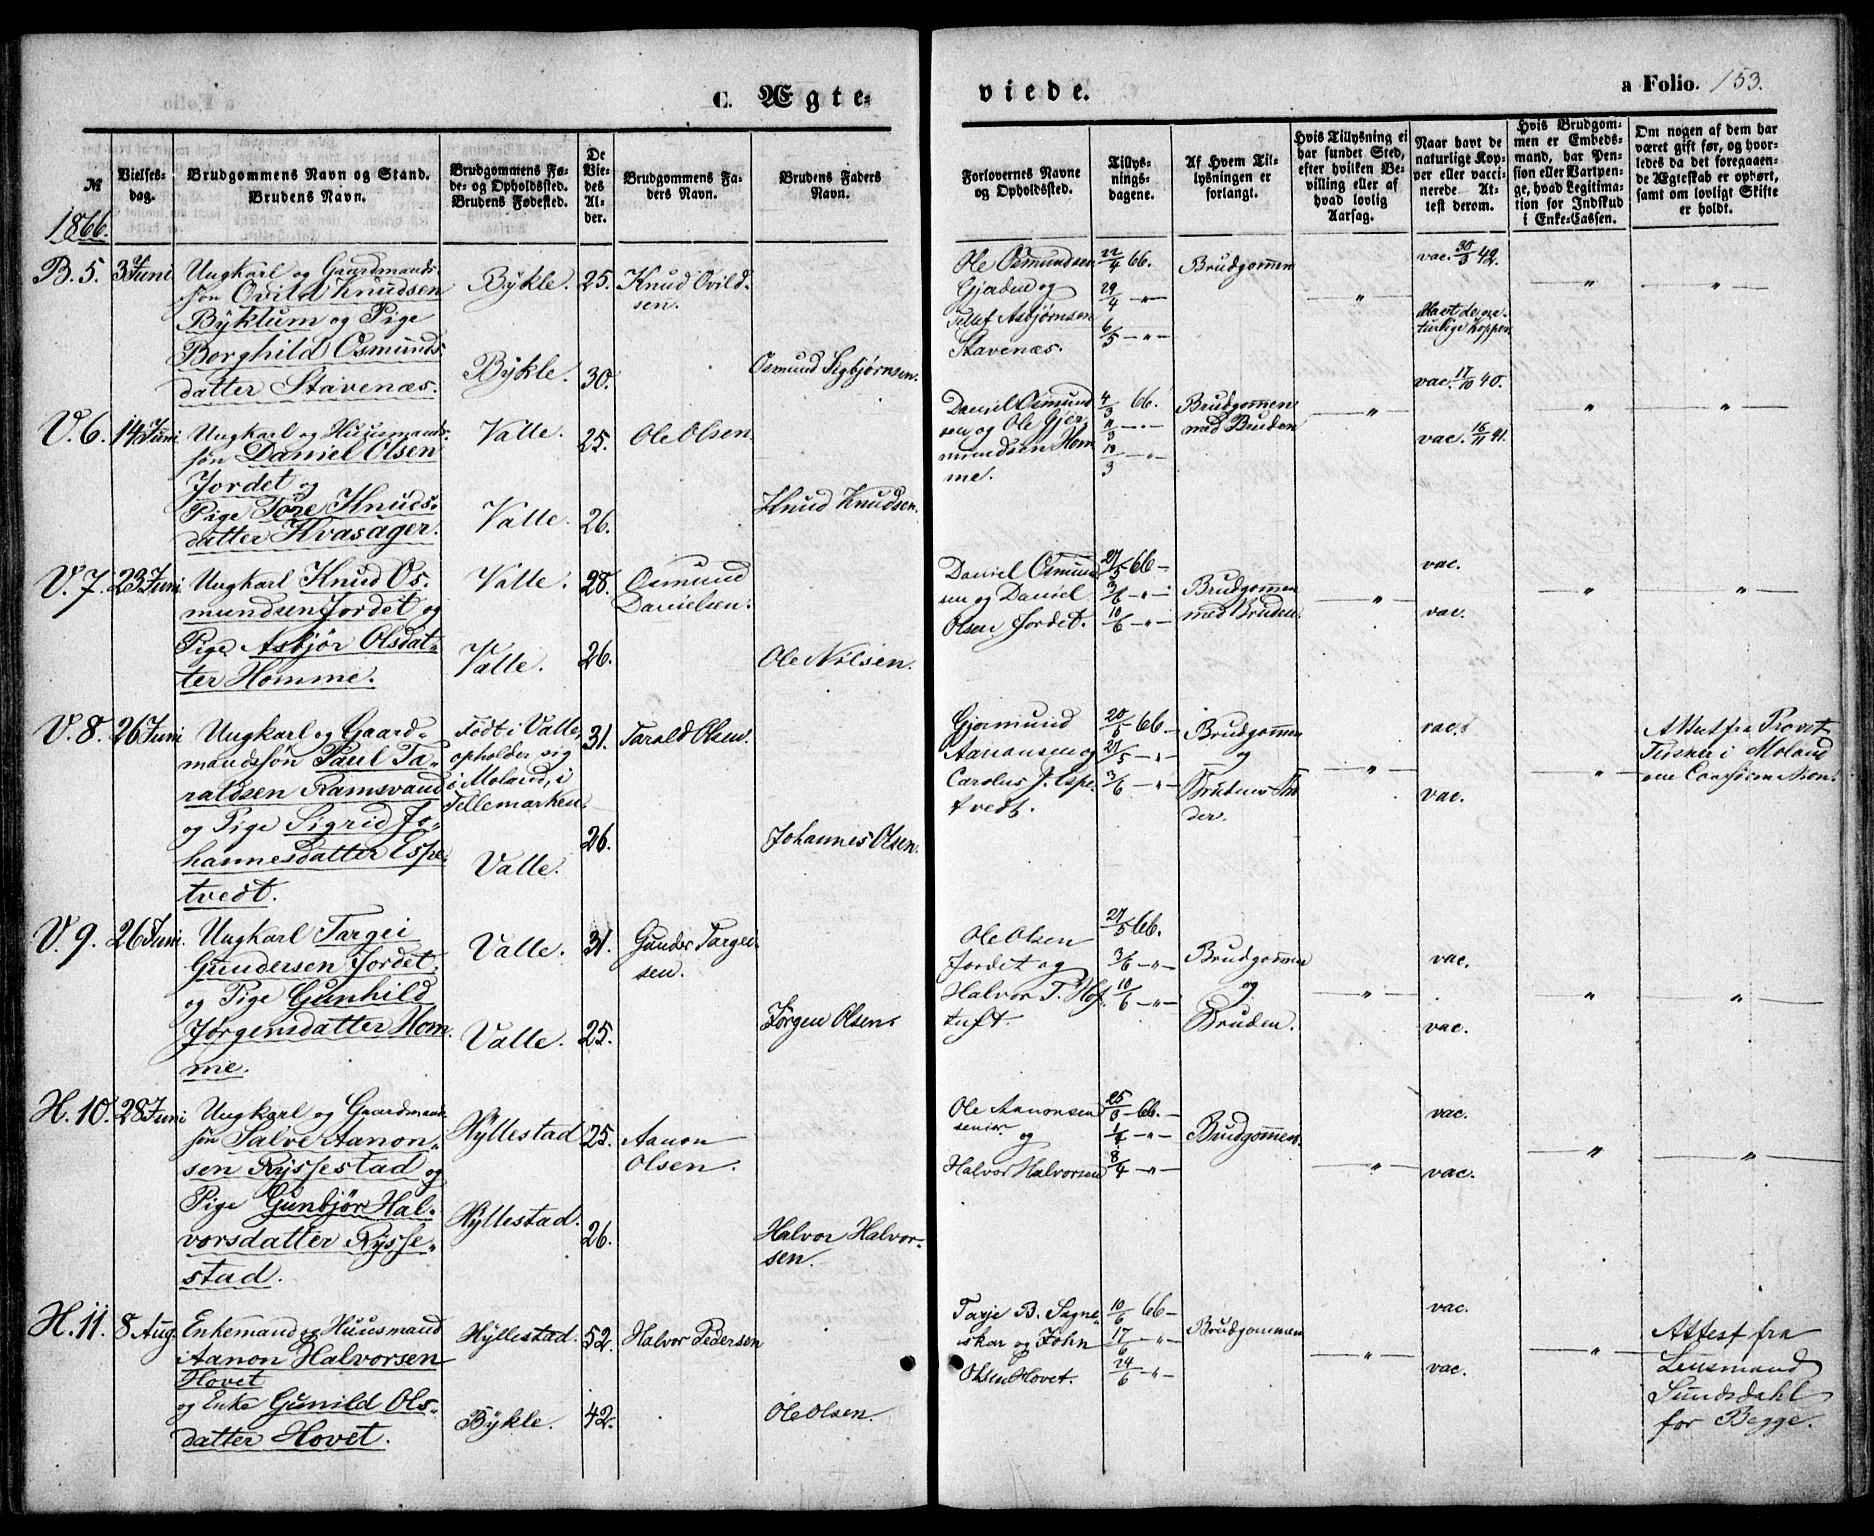 C. Ægte-
viede.
a Folio. 153.
№
Vielses-
dag.
Brudgommens Navn og Stand.
Brudens Navn.
Brudgommens Fø-
de- og Opholdssted.
Brudens Fødested.
De
Vie-
des
Al-
der.
Brudgommens Fa-
ders Navn.
Brudens Faders
Navn.
Forlovernes Navne
og Opholdssted.
Tillys-
nings-
dagene.
Af Hvem Til-
lysningen er
forlangt.
Hvis Tillysning ei
har fundet Sted,
efter hvilken Be-
villing eller af
hvad lovlig
Aarsag.
Naar havt de
naturlige Kop-
per eller vacci-
nerede At-
test derom.
Hvis Brudgom-
men er Embeds-
mand, har Pen-
sion eller Vartpen-
ge, hvad Legitima-
tion for Indskud
i Enke-Cassen.
Om nogen af dem har
været gift før, og hvor-
ledes da det foregaaen-
de Ægteskab er ophørt,
samt om lovligt Skifte
er holdt.
1866.
B. 5.
3 Juni
Ungkarl og Gaardmands-
søn Ovild Knudsen
Byklum og Pige
Borghild Osmunds-
datter Stavenæs.
Bykle.
Bykle.
25.
30.
Knud Ovild-
sen.
Osmund Sigbjørnsen.
Ole Osmundsen
Gjerden og
Tellef Asbjørnsen
Stavenæs.
22/4 66.
29/4 - " -
6/5 - " -
Brudgommen
"
vac. 30/3 42.
Havt de na-
turlige Kopper
"
"
V. 6.
14 Juni
Ungkarl og Huusmands-
søn Daniel Olsen
Jordet og
Pige Tore Knuds-
datter Kvasager.
Valle.
Valle.
25.
26.
Ole Olsen.
Knud Knudsen.
Daniel Osmund
sen og Ole Gjer-
mundsen Hom
me.
4/3 66.
11/3 - " -
18/3 - " -
Brudgommen
med Bruden
"
vac. 17/10 40.
vac. 16/11 41.
"
"
V. 7.
23 Juni
Ungkarl Knud Os-
mundsen Jordet og
Pige Asbjør Olsdat-
ter Homme.
Valle.
Valle.
28.
26.
Osmund
Danielsen.
Ole Nilsen.
Daniel Osmund
sen og Daniel
Olsen Jordet.
27/5 - 66 -
3/6 - " -
10/6 - " -
Brudgommen
med Bruden.
"
vac.
vac.
"
"
V. 8.
26 Juni
Ungkarl og Gaard-
mandssøn Paul Ta-
raldsen Ramsvand
og Pige Sigrid Jo-
hannesdatter Espe-
tvedt.
Født i Valle,
opholder sig
i Moland, i
Tellemarken
Valle.
31.
26.
Tarald Olsen.
Johannes Olsen.
Gjermund
Aanonsen og
Carolus J. Espe-
tvedt.
20/5 - 66 -
27/5 - " -
3/6 - " -
Brudgommen
og
Brudens Fa
der.
"
vac.
vac.
"
Attest fra Provst
i Moland
om Confirmation.
V. 9.
26 Juni.
Ungkarl Targei
Gundersen Jordet
og Pige Gunhild
Jørgensdatter Hom
me.
Valle.
Valle.
31.
25.
Gunder Targei-
sen.
Jørgen Olsen.
Ole Olsen
Jordet og
Halvor T. Hof-
tuft.
27/5 66.
3/6 - " -
10/6 - " -
Brudgommen
og
Bruden.
"
vac.
vac.
"
"
H. 10.
28 Juni
Ungkarl og Gaardmands-
søn Salve Aanon-
sen Rysstad og
Pige Gunbjør Hal-
vorsdatter Rysse-
stad.
Hyllestad
Hyllestad.
25.
26.
Aanon
Olsen.
Halvor Halvor-
sen.
Ole Aanonsen
senior og
Halvor Halvorsen
25/3 - 66. -
1/4 - " -
8/4 - " -
Brudgommen.
"
vac.
vac.
"
"
H. 11.
8 Aug.
Enkemand og Huusmand
Aanon Halvorsen
Hovet
og Enke Gunild Ols-
datter Hovet.
Hyllestad.
Bykle.
52.
42.
Halvor Pedersen
Ole Olsen.
Tarje B. Sagne-
skar og John
Olsen Hovet.
10/6 - 66 -
17/6 - " -
24/6 - " -
Brudgommen
"
vac.
vac.
"
Attest fra
Lensmand
Sundsdahl
for Begge.